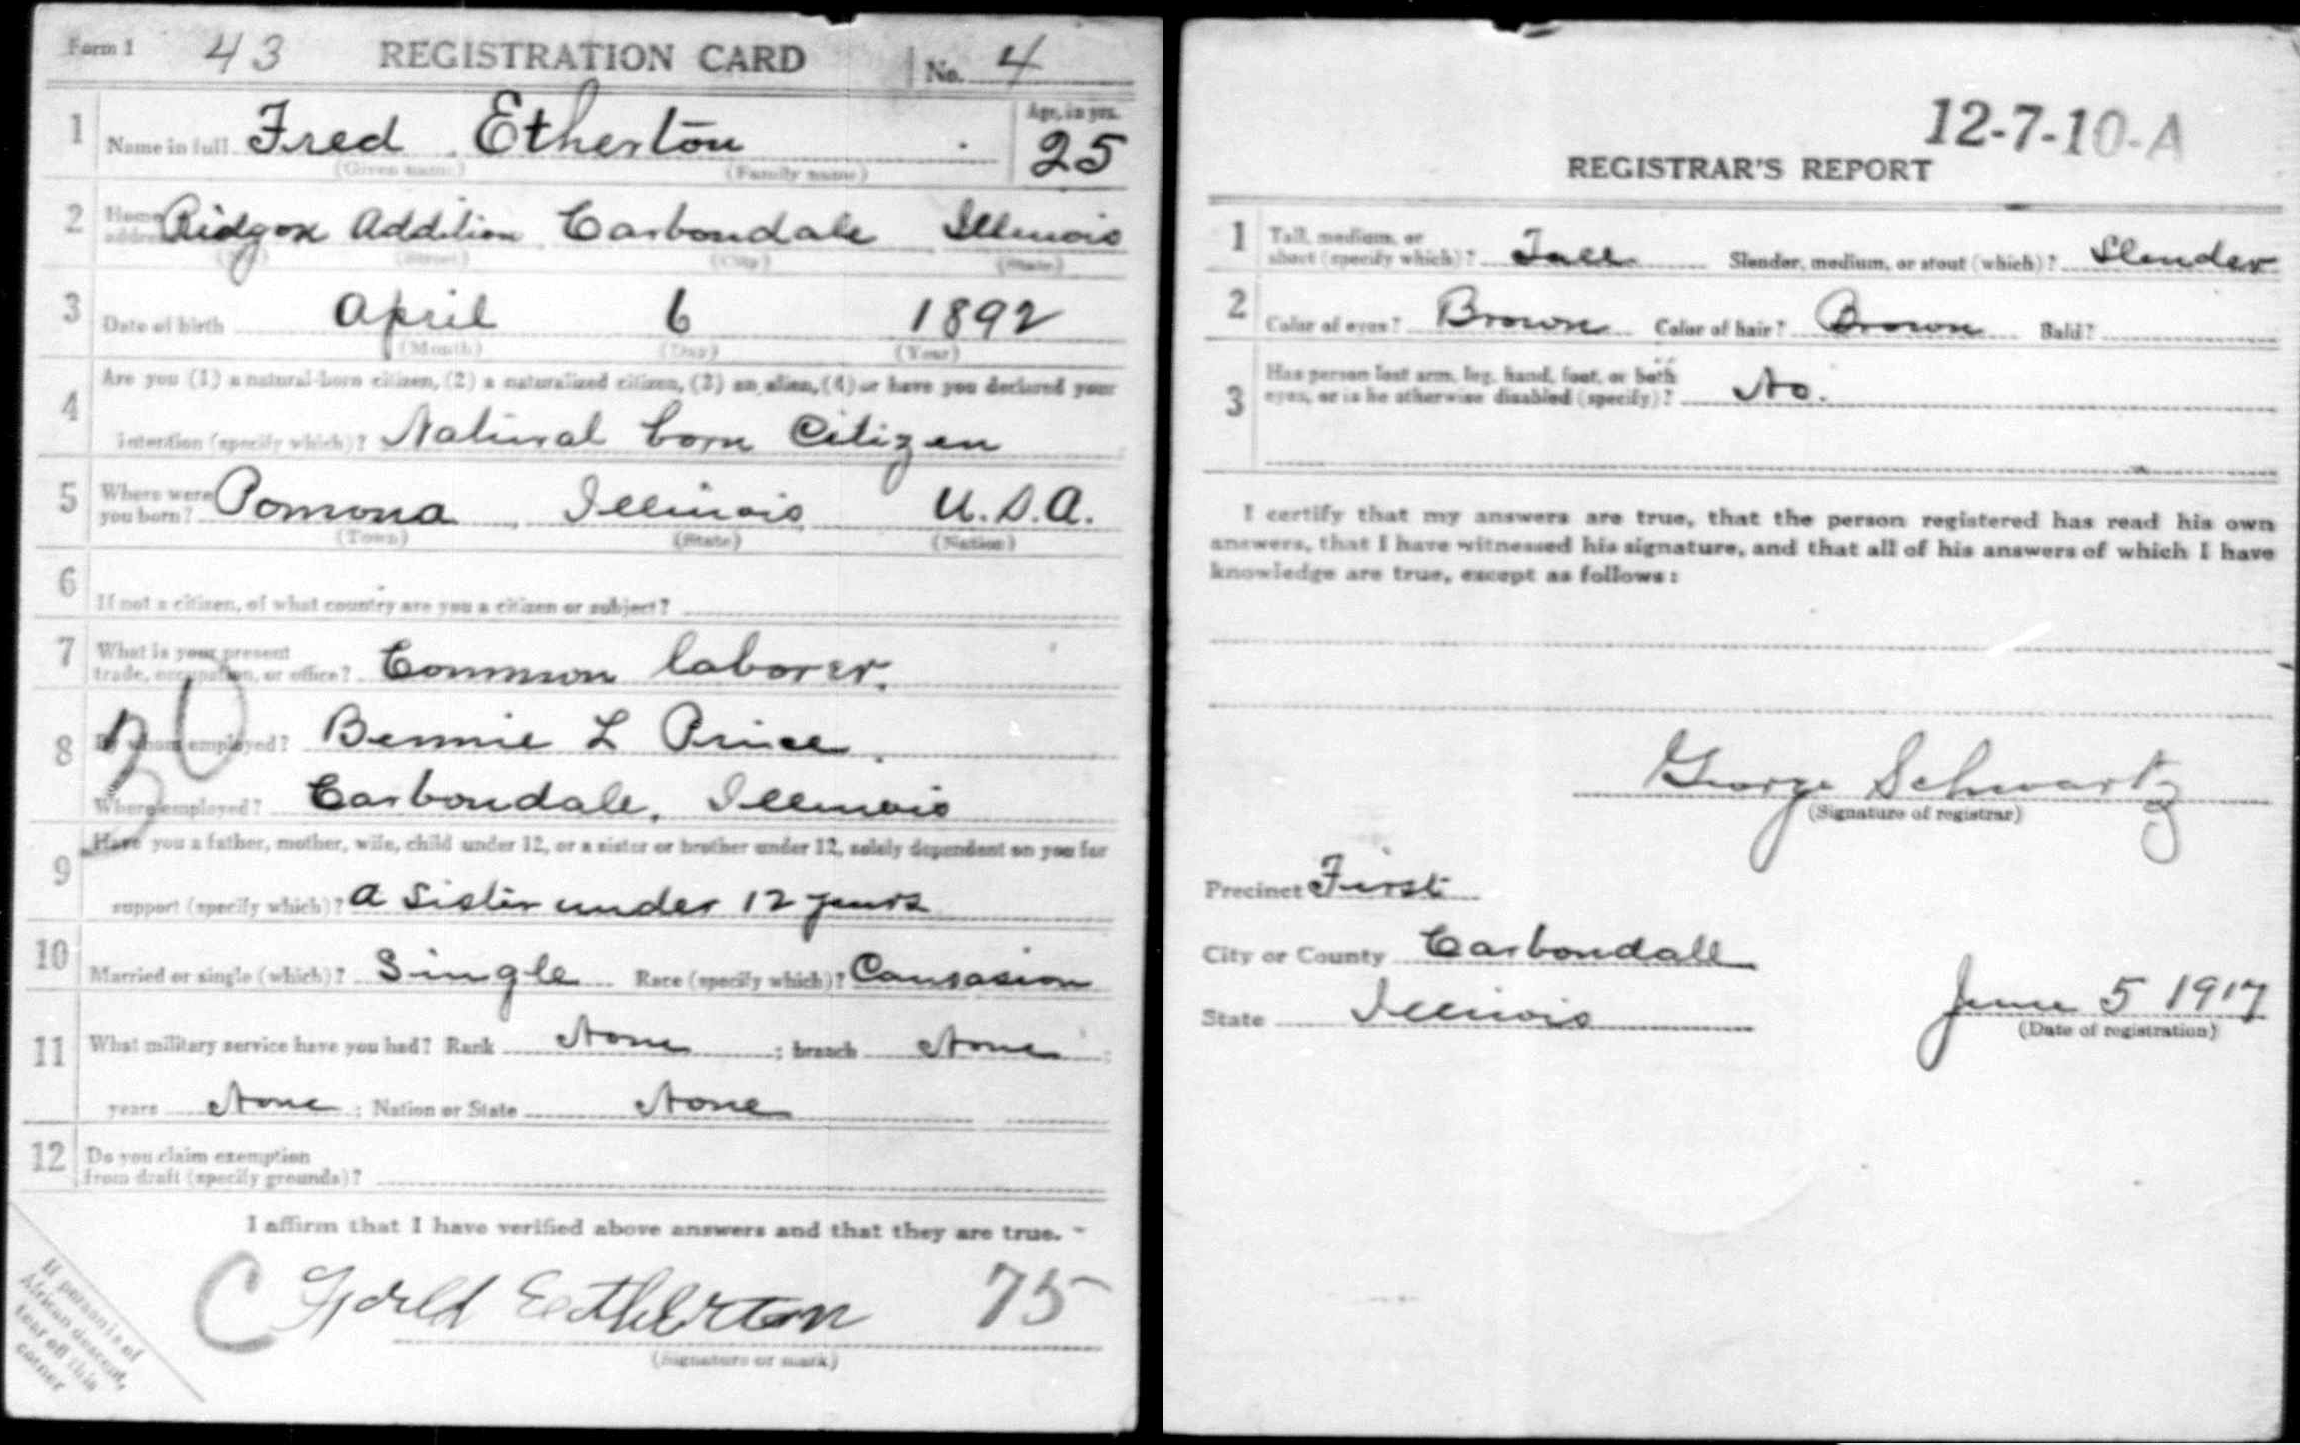 Form 1 43 REGISTRATION CARD No. 4
1 Name in full Fred Etherton Age, in yrs. 25
(Given name) (Family name)
2 Home address Ridgon Addition Carbondale Illinois
(No.) (Street) (City) (State)
3 Date of birth April 6 1892
(Month) (Day) (Year)
4 Are you (1) a natural-born citizen, (2) a naturalized citizen, (3) an alien, (4) or have you declared your
intention (specify which)? Natural born Citizen
5 Where were you born? Pomona Illinois U.S.A.
(Town) (State) (Nation)
6 If not a citizen, of what country are you a citizen or subject?
7 What is your present
trade, occupation, or office? Common laborer.
8 By whom employed? Bennie L Price
Where employed? Carbondale, Illinois
9 Have you a father, mother, wife, child under 12, or a sister or brother under 12, solely dependent on you for
support (specify which)? A Sister under 12 years
10 Married or single (which)? Single Race (specify which)? Causasion
11 What military service have you had? Rank None ; branch None ;
years None ; Nation or State None
12 Do you claim exemption
from draft (specify grounds)?
I affirm that I have verified above answers and that they are true.
C Etherton 75
(Signature or mark)
If person is of
African descent,
tear off this
corner
12-7-10-A
REGISTRAR'S REPORT
1 Tall, medium, or
short (specify which)? Tall Slender, medium, or stout (which)? Slender
2 Color of eyes? Brown Color of hair? Brown Bald?
3 Has person lost arm, leg, hand, foot, or both
eyes, or is he otherwise disabled (specify)? No.
I certify that my answers are true, that the person registered has read his own
answers, that I have witnessed his signature, and that all of his answers of which I have
knowledge are true, except as follows:
George Schwartz
(Signature of registrar)
Precinct First
City or County Carbondall
State Illinois June 5 1917
(Date of registration)